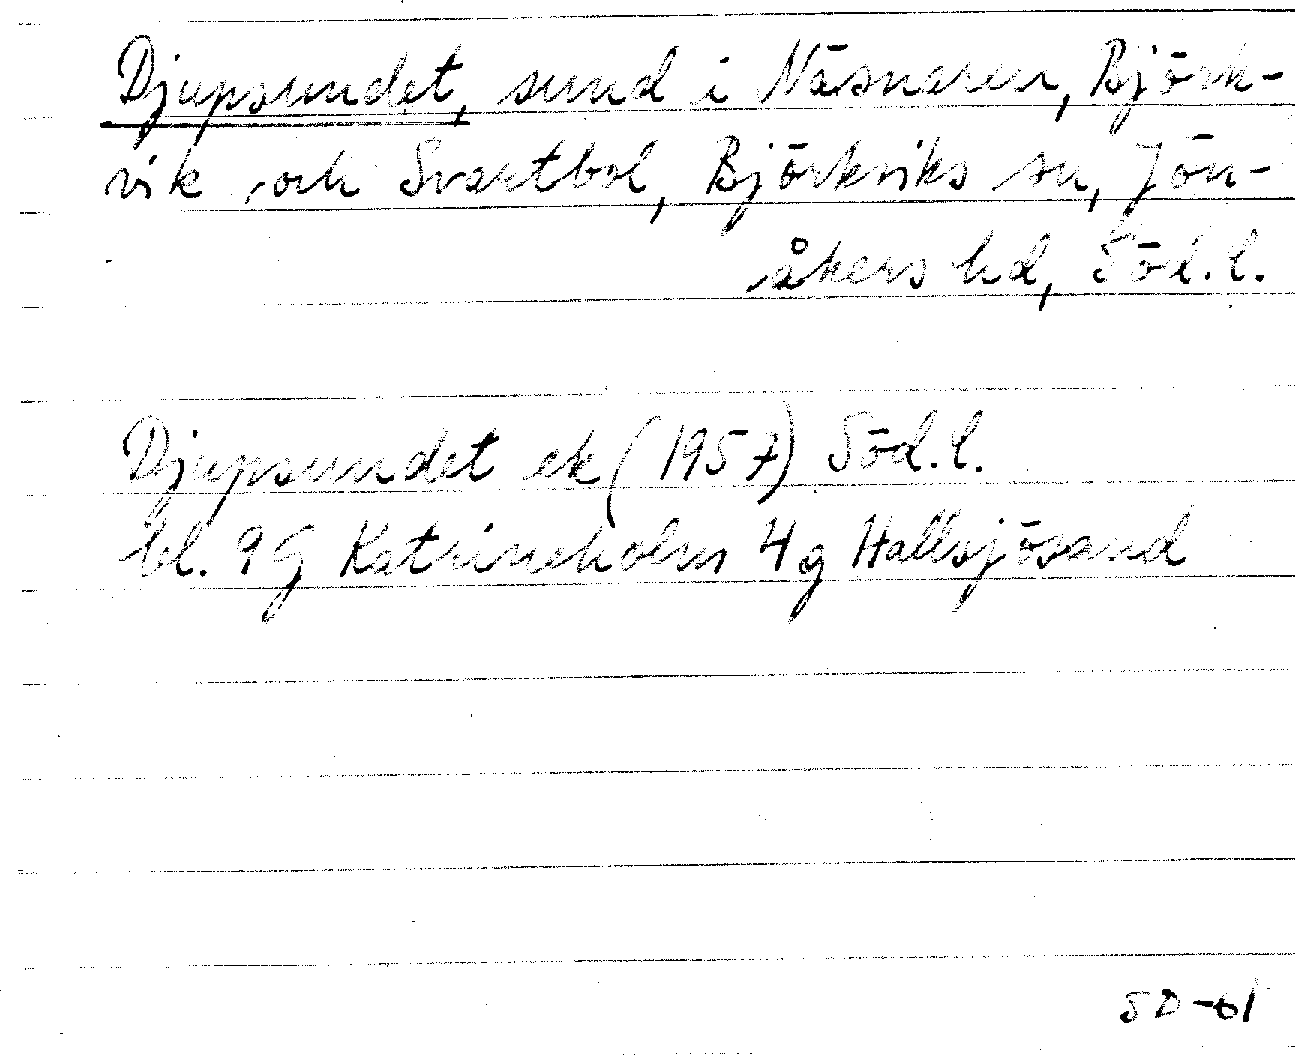 Djupsundet, sund i Näsnaren, Björk-
vik och Svartbol, Björkviks sn, Jön-
åkers hd, Söd.l.
Djupsundet ek (1957) Söd.l.
bl. 9G Katrineholm 4g Hallsjösand
SD-61